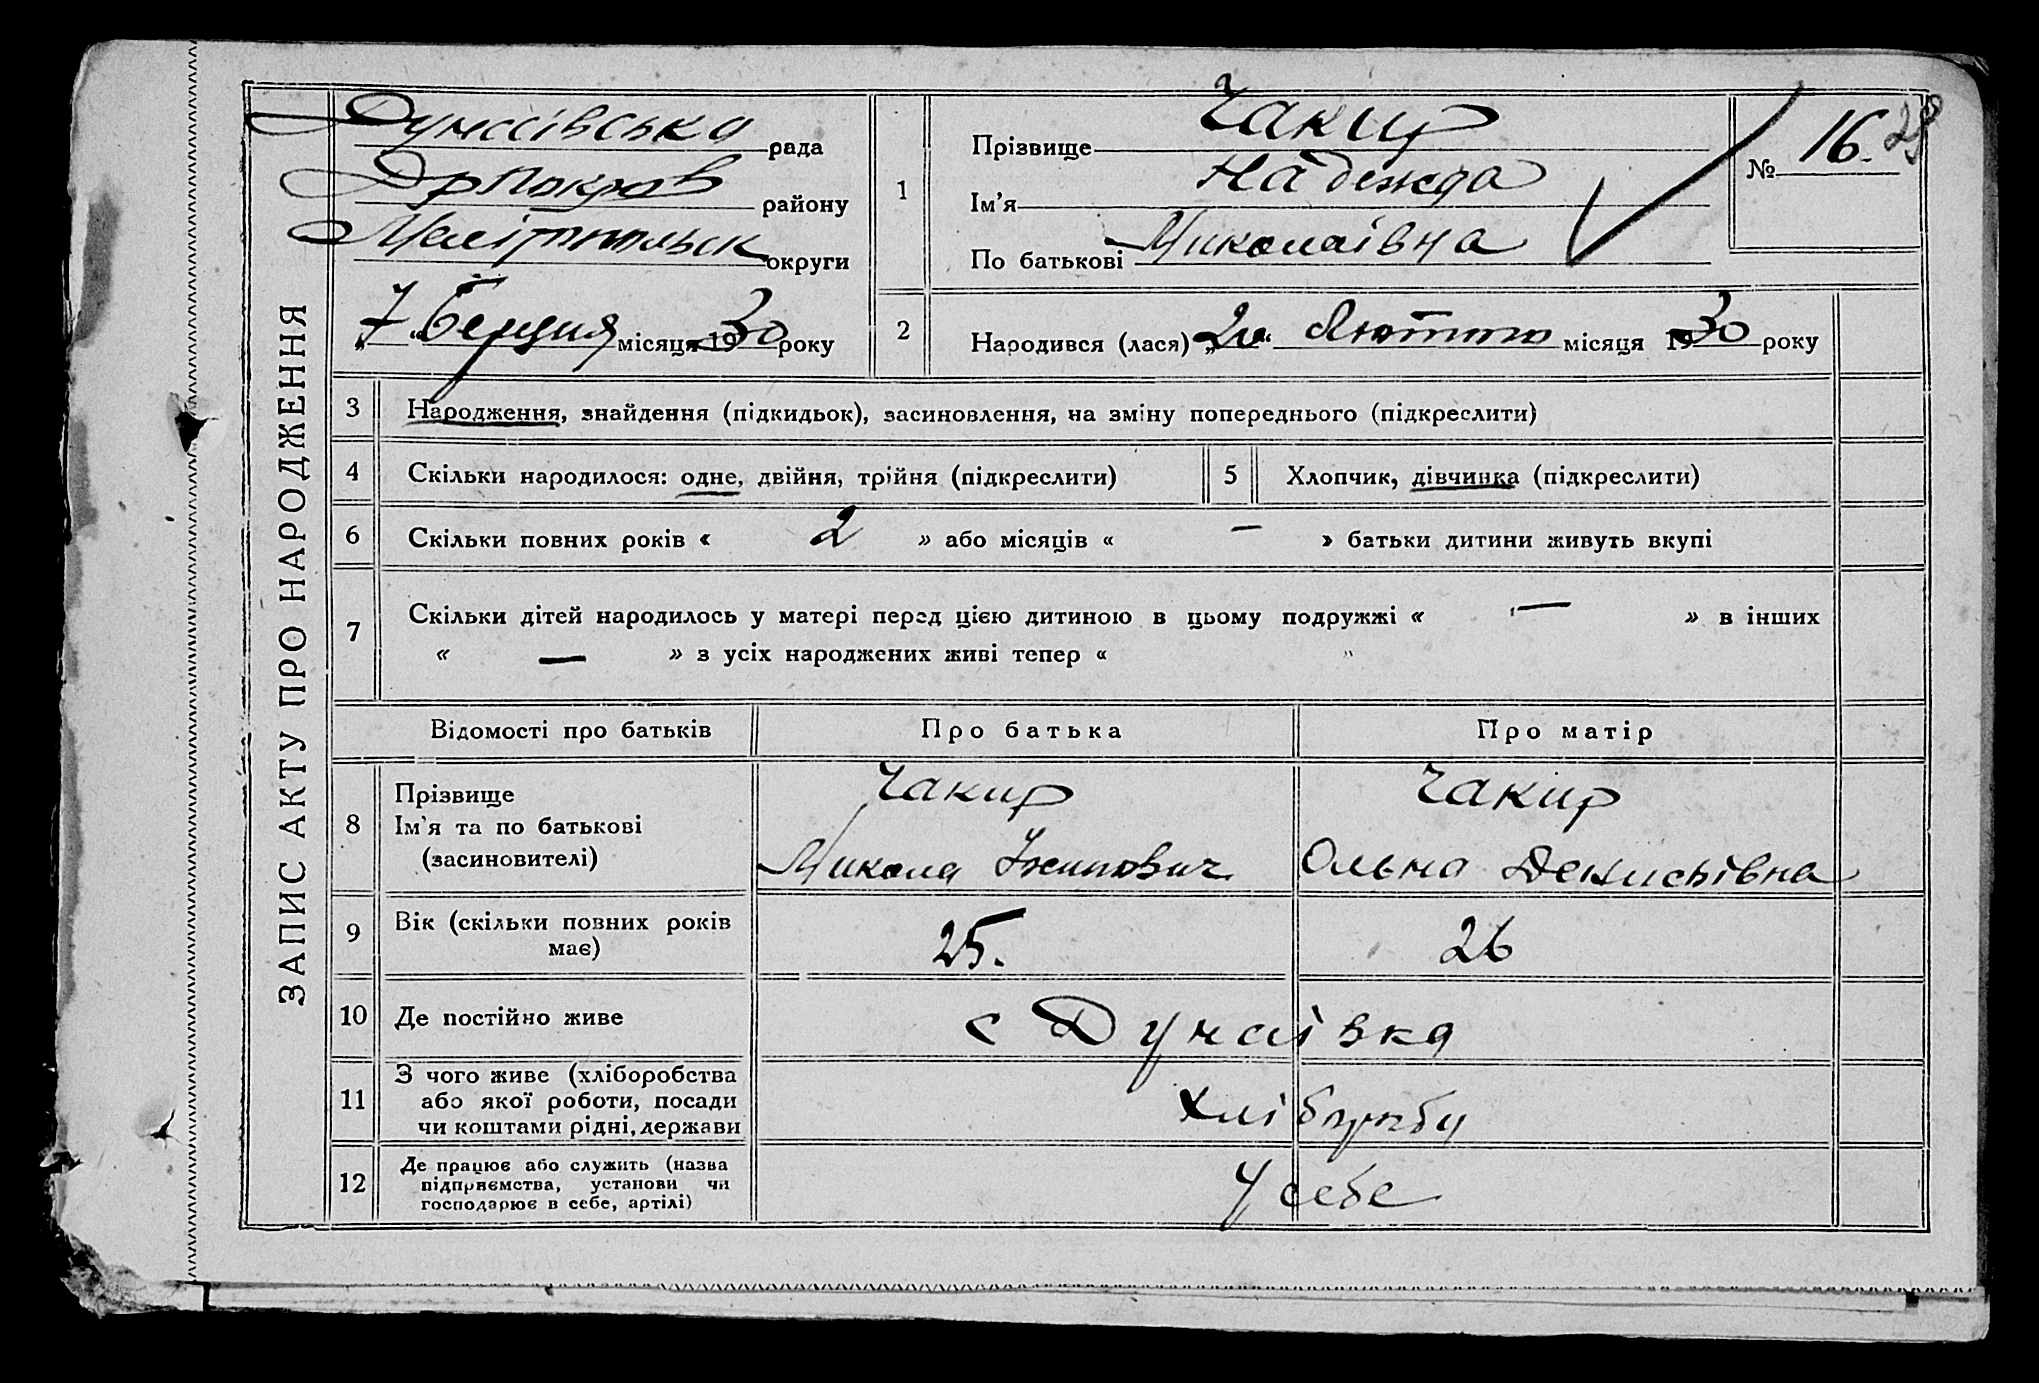 ЗАПИС АКТУ ПРО НАРОДЖЕННЯ
Дунаївська рада
района Др Покров району
Мелітопольськ округи
„7“ Березня місяця 1930 року
1
Прізвище Чакир
Ім’я Надежда
По батькові Миколаівна
№ 16.
2
Народився (лася) „20“ Лютого місяця 1930 року
3 Народження, знайдення (підкидьок), засиновлення, на зміну попереднього (підкреслити)
4 Скільки народилося: одне, двійня, трійня (підкреслити)
5 Хлопчик, дівчинка (підкреслити)
6 Скільки повних років « 2 » або місяців « — » батьки дитини живуть вкупі
7 Скільки дітей народилось у матері перед цією дитиною в цьому подружжі « — » в інших
« — » з усіх народжених живі тепер « "
Відомості про батьків Про батька Про матір
8 Прізвище Чакир Чакир
Ім’я та по батькові
(засиновителі) Микола Юсипович Ольга Денисівна
9 Вік (скільки повних років
має) 25. 26
10 Де постійно живе с Дунаівка
11 З чого живе (хліборобства
або якої роботи, посади
чи коштами рідні, держави Хліборобу
12 Де працює або служить (назва
підприємства, установи чи
господарює в себе, артілі) У себе